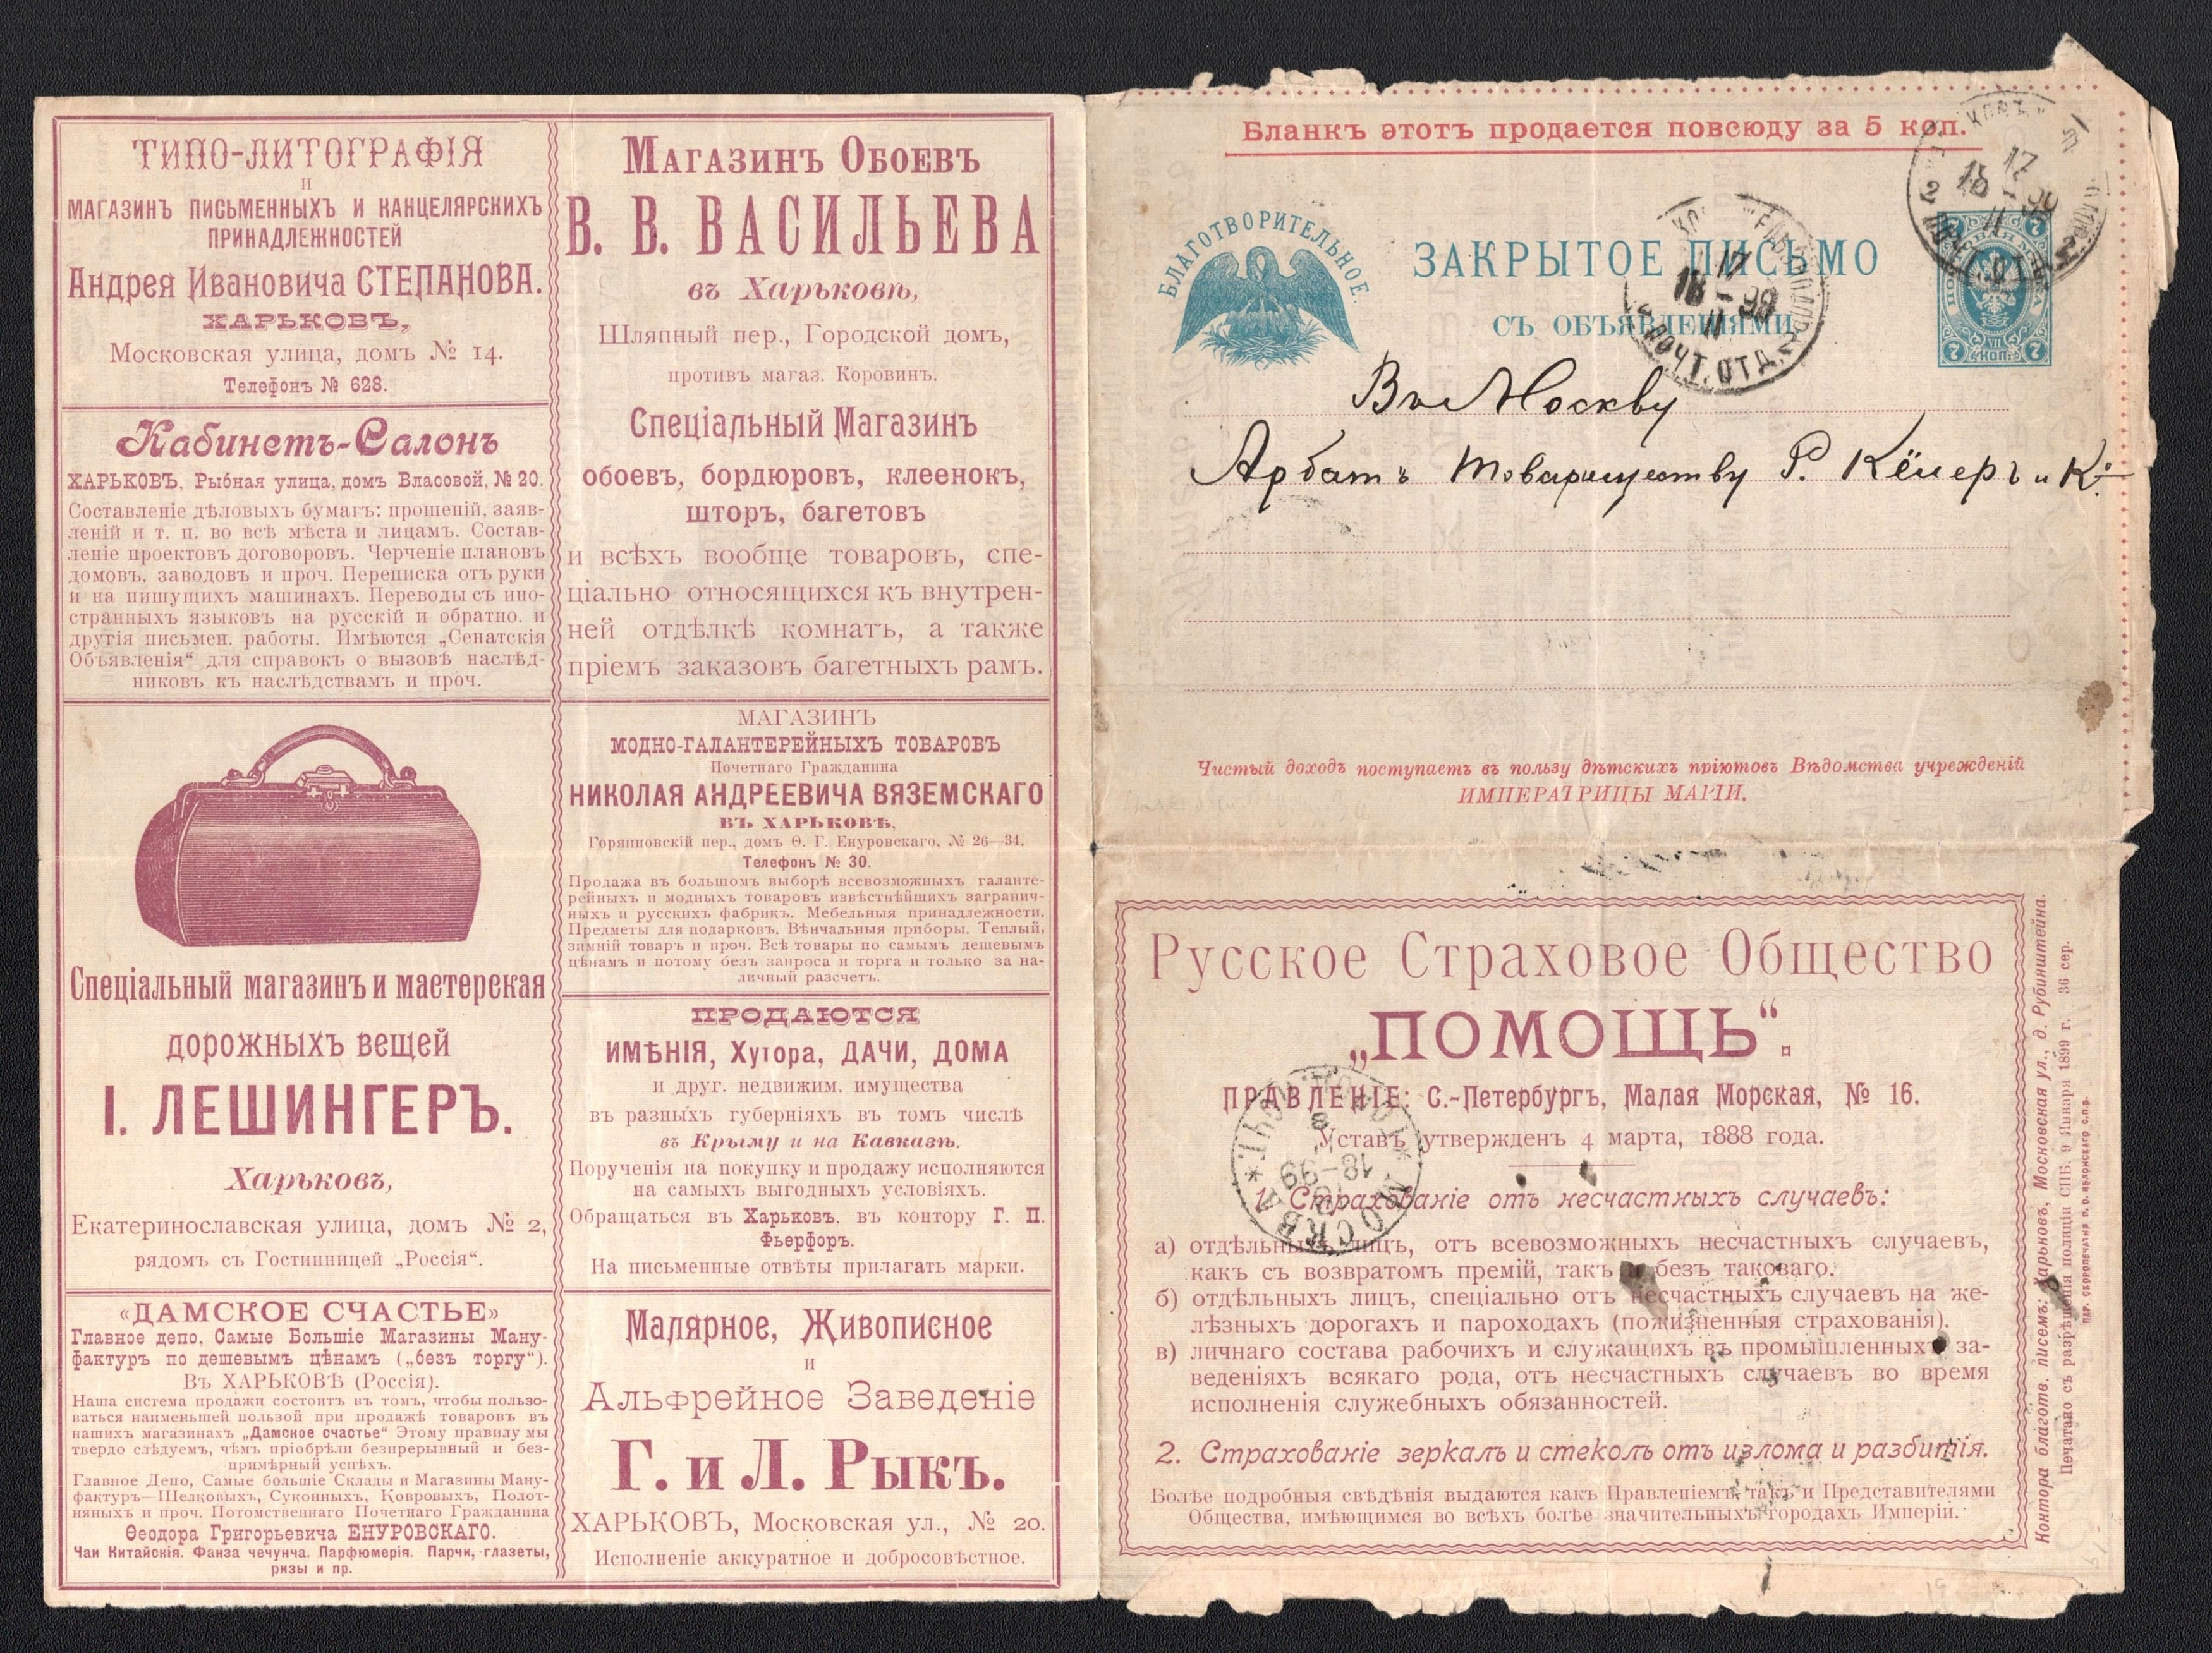 ТИПО-ЛИТОГРАФІЯ
И
МАГАЗИНЪ ПИСЬМЕННЫХЪ И КАНЦЕЛЯРСКИХЪ
ПРИНАДЛЕЖНОСТЕЙ
Андрея Ивановича СТЕПАНОВА.
ХАРЬКОВЪ,
Московская улица, домъ № 14.
Телефонъ № 628.
Кабинетъ-Салонъ
ХАРЬКОВЪ, Рыбная улица, домъ Власовой, № 20.
Составленіе дѣловыхъ бумагъ: прошеній, заяв-
леній и т. п. во всѣ мѣста и лицамъ. Состав-
леніе проектовъ договоровъ. Черченіе плановъ
домовъ, заводовъ и проч. Переписка отъ руки
и на пишущихъ машинахъ. Переводы съ ино-
странныхъ языковъ на русскій и обратно, и
другія письмен. работы. Имѣются „Сенатскія
Объявленія“ для справокъ о вызовѣ наслѣд-
никовъ къ наслѣдствамъ и проч.
Спеціальный магазинъ и мастерская
дорожныхъ вещей
І. ЛЕШИНГЕРЪ.
Харьковъ,
Екатеринославская улица, домъ № 2,
рядомъ съ Гостинницей „Россія“.
«ДАМСКОЕ СЧАСТЬЕ»
Главное депо, Самые Большіе Магазины Ману-
фактуръ по дешевымъ цѣнамъ („безъ торгу“).
Въ ХАРЬКОВѢ (Россія).
Наша система продажи состоитъ въ томъ, чтобы пользо-
ваться наименьшей пользой при продажѣ товаровъ въ
нашихъ магазинахъ „Дамское счастье“ Этому правилу мы
твердо слѣдуемъ, чѣмъ пріобрѣли безпрерывный и без-
примѣрный успѣхъ.
Главное Депо, Самые большіе Склады и Магазины Ману-
фактуръ—Шелковыхъ, Суконныхъ, Ковровыхъ, Полот-
няныхъ и проч. Потомственнаго Почетнаго Гражданина
Ѳеодора Григорьевича ЕНУРОВСКАГО.
Чаи Китайскія. Фанза чечунча. Парфюмерія. Парчи, глазеты,
ризы и пр.
Магазинъ Обоевъ
В. В. ВАСИЛЬЕВА
въ Харьковѣ,
Шляпный пер., Городской домъ,
противъ магаз. Коровинъ.
Спеціальный Магазинъ
обоевъ, бордюровъ, клеенокъ,
шторъ, багетовъ
и всѣхъ вообще товаровъ, спе-
ціально относящихся къ внутрен-
ней отдѣлкѣ комнатъ, а также
пріемъ заказовъ багетныхъ рамъ.
МАГАЗИНЪ
МОДНО-ГАЛАНТЕРЕЙНЫХЪ ТОВАРОВЪ
Почетнаго Гражданина
НИКОЛАЯ АНДРЕЕВИЧА ВЯЗЕМСКАГО
ВЪ ХАРЬКОВѢ,
Горяиновскій пер., домъ Ѳ. Г. Енуровскаго, № 26—34.
Телефонъ № 30.
Продажа въ большомъ выборѣ всевозможныхъ галанте-
рейныхъ и модныхъ товаровъ извѣстнѣйшихъ загранич-
ныхъ и русскихъ фабрикъ. Мебельныя принадлежности.
Предметы для подарковъ. Вѣнчальныя приборы. Теплый,
зимній товаръ и проч. Всѣ товары по самымъ дешевымъ
цѣнамъ и потому безъ запроса и торга и только за на-
личный разсчетъ.
ПРОДАЮТСЯ
ИМѢНІЯ, Хутора, ДАЧИ, ДОМА
и друг. недвижим. имущества
въ разныхъ губерніяхъ въ томъ числѣ
въ Крыму и на Кавказѣ.
Порученія на покупку и продажу исполняются
на самыхъ выгодныхъ условіяхъ.
Обращаться въ Харьковъ, въ контору Г. П.
Фьерфоръ.
На письменные отвѣты прилагать марки.
Малярное, Живописное
и
Альфрейное Заведеніе
Г. и Л. Рыкъ.
ХАРЬКОВЪ, Московская ул., № 20.
Исполненіе аккуратное и добросовѣстное.
Бланкъ этотъ продается повсюду за 5 коп.
БЛАГОТВОРИТЕЛЬНОЕ.
ЗАКРЫТОЕ ПИСЬМО
СЪ ОБЪЯВЛЕНІЯМИ
7 7
7 VII КОП. 7
2 ПОЧТ. ОТД. 2
17
18-99
II
ПОЧТ. ОТД.
Въ Москву
Арбатъ Товариществу Р. Кёлеръ и Ко.
Чистый доходъ поступаетъ въ пользу дѣтскихъ пріютовъ Вѣдомства учрежденій
ИМПЕРАТРИЦЫ МАРІИ.
Русское Страховое Общество
„ПОМОЩЬ“.
ПРАВЛЕНІЕ: С.-Петербургъ, Малая Морская, № 16.
Уставъ утвержденъ 4 марта, 1888 года.
МОСКВА
18-99
1. Страхованіе отъ несчастныхъ случаевъ:
а) отдѣльныхъ лицъ, отъ всевозможныхъ несчастныхъ случаевъ,
какъ съ возвратомъ премій, такъ и безъ таковаго.
б) отдѣльныхъ лицъ, спеціально отъ несчастныхъ случаевъ на же-
лѣзныхъ дорогахъ и пароходахъ (пожизненныя страхованія).
в) личнаго состава рабочихъ и служащихъ въ промышленныхъ за-
веденіяхъ всякаго рода, отъ несчастныхъ случаевъ во время
исполненія служебныхъ обязанностей.
2. Страхованіе зеркалъ и стеколъ отъ излома и разбитія.
Болѣе подробныя свѣдѣнія выдаются какъ Правленіемъ, такъ и Представителями
Общества, имѣющимся во всѣхъ болѣе значительныхъ городахъ Имперіи.
Контора благотв. писемъ: Харьковъ, Московская ул., д. Рубинштейна.
Печатано съ разрѣшенія полиціи СПБ. 9 Января 1899 г. 36 сер.